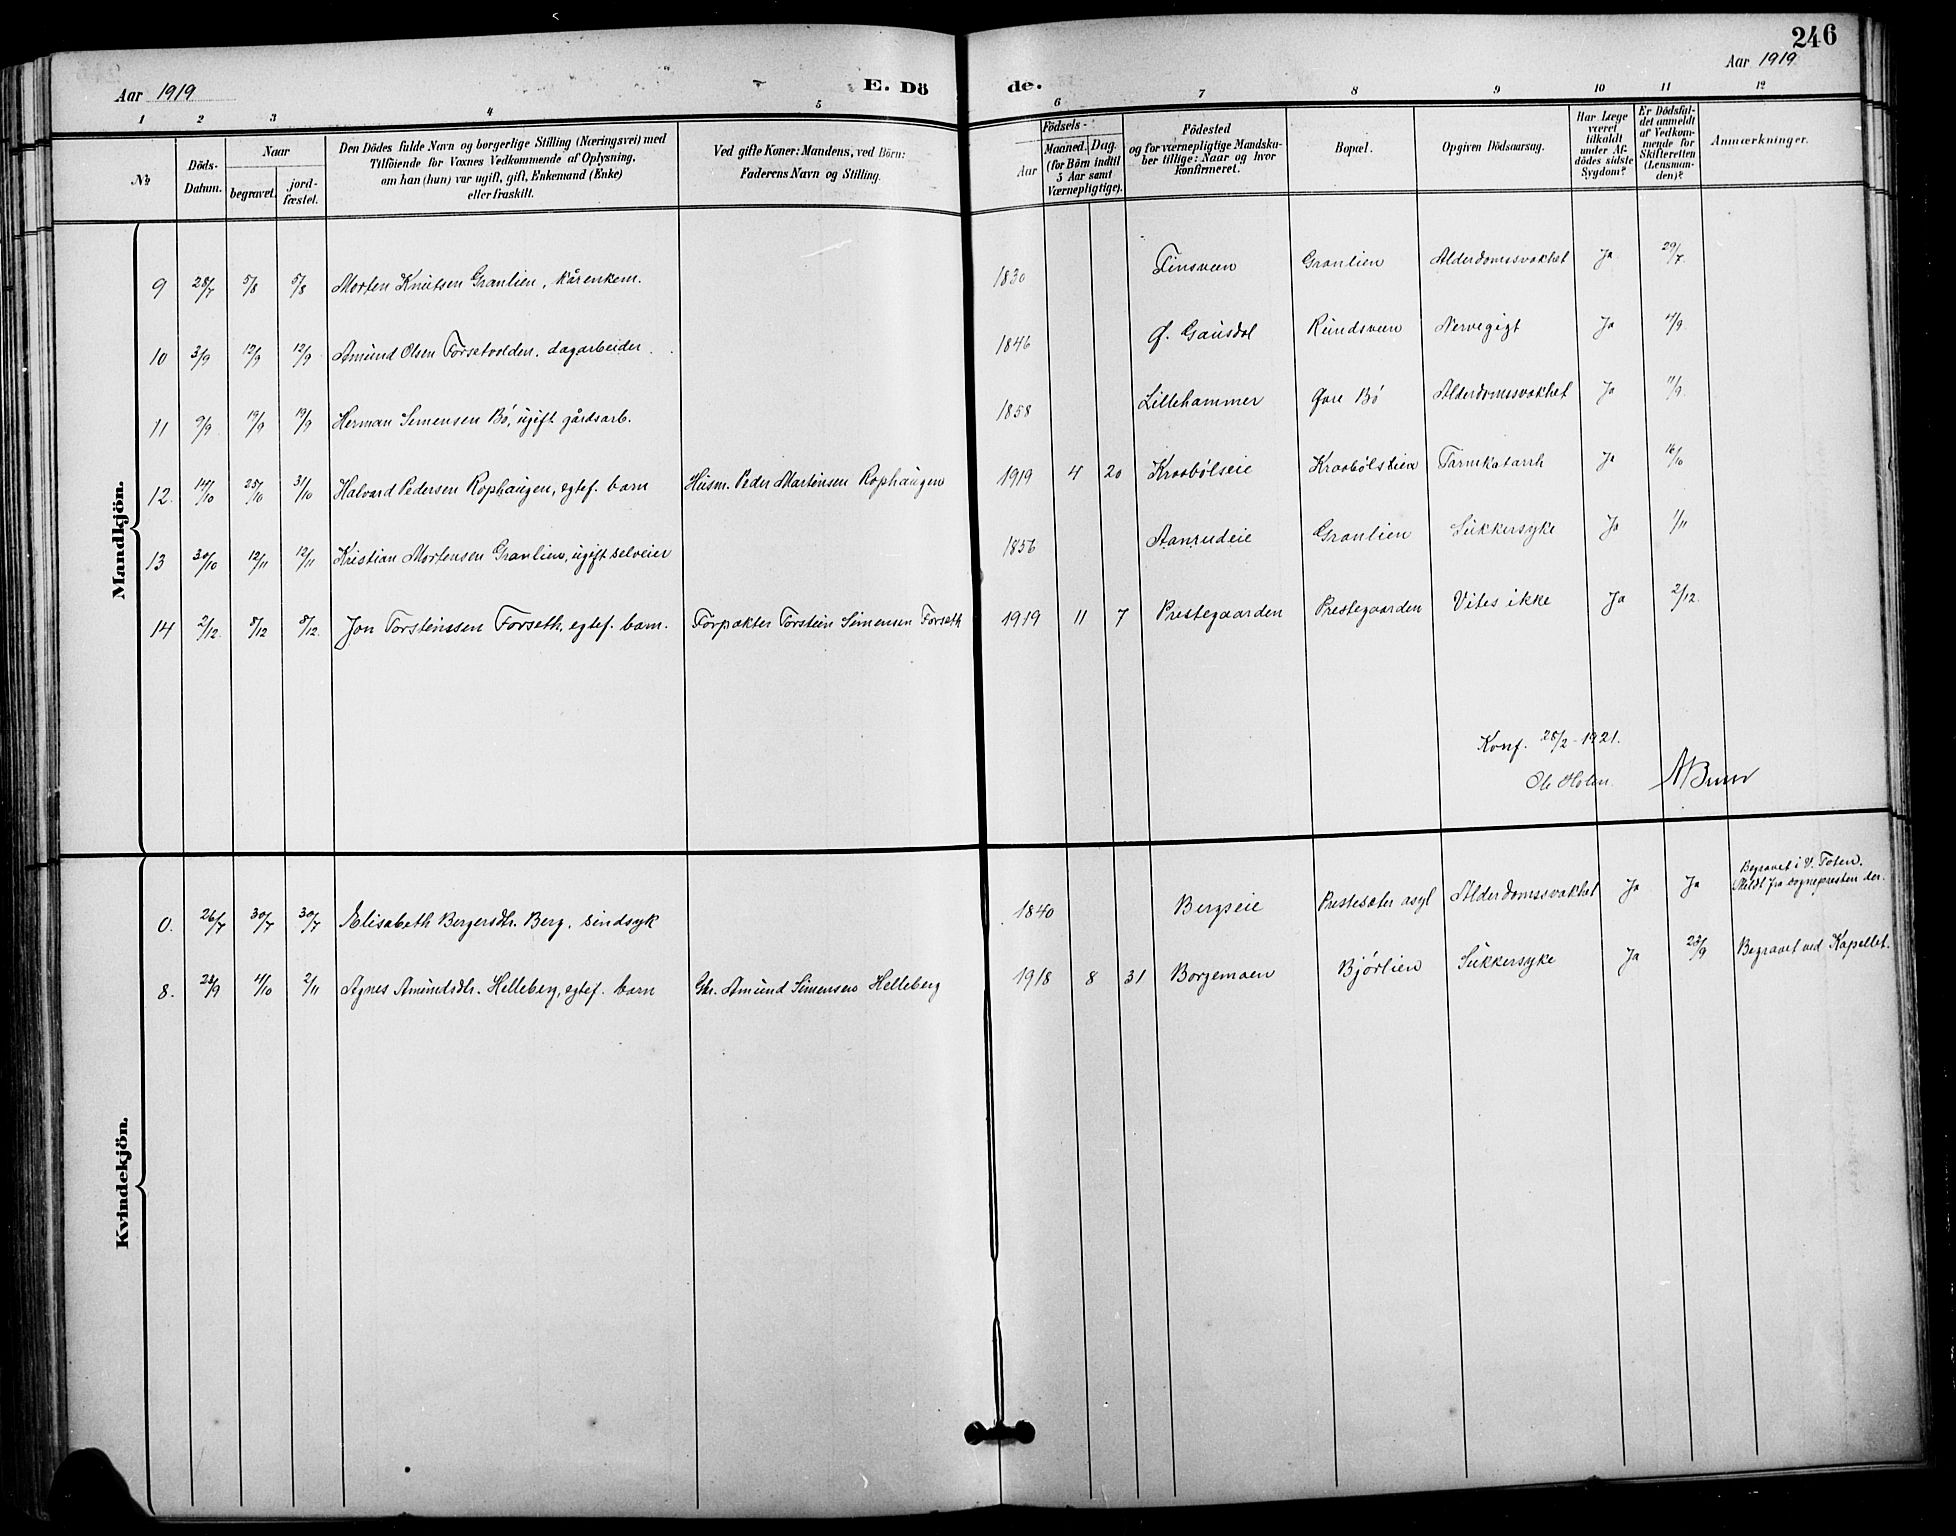 246
Aar 1919
E. Dö
de.
Aar 1919
1 2 3 4 5 6 7 8 9 10 11 12
No
Döds-
Datum.
Naar
begravet.
jord-
fæstet.
Den Dödes fulde Navn og borgerlige Stilling (Næringsvei) med
Tilföiende for Voxnes Vedkommende af Oplysning,
om han (hun) var ugift, gift, Enkemand (Enke)
eller fraskilt.
Ved gifte Koner: Mandens, ved Börn:
Faderens Navn og Stilling.
Födsels-
Aar
Maaned. Dag.
(for Börn indtil
5 Aar samt
Værnepligtige).
Födested
og for værnepligtige Mandska-
ber tillige: Naar og hvor
konfirmeret.
Bopæl.
Opgiven Dödsaarsag.
Har Læge
været
tilkaldt
under Af-
dödes sidste
Sygdom?
Er Dödsfal-
det anmeldt
af Vedkom-
mende for
Skifteretten
(Lensman-
den)?
Anmærkninger.
Mandkjön.
9 28/7 5/8 5/8 Morten Knutsen Granlien, kårenkem. 1830 Finsveen Granlien Alderdomssvakhet Ja 29/7
10 3/9 12/9 12/9 Amund Olsen Forsetvolden, dagarbeider 1846 Ø. Gausdal Rundsveen Nervegigt Ja 4/9
11 9/9 19/9 19/9 Herman Simensen Bø, ugift gårdsarb. 1858 Lillehammer Øvre Bø Alderdomssvakhet Ja 11/9
12. 14/10 25/10 31/10 Halvard Pedersen Rophaugen, egtef. barn Husm. Peder Martinsen Rophaugen 1919 4 20 Kraabølseie Kraabølslien Tarmkatarrh Ja 16/10
13 30/10 12/11 12/11 Kristian Mortensen Granlien, ugift selveier 1856 Aanrudeie Granlien Sukkersyke Ja 1/11
14 2/12 8/12 8/12 Jon Torstenssen Forseth, egtef. barn. Forpakter Torstein Simensen Forseth 1919 11 7 Prestegaarden Prestegaarden Vites ikke Ja 2/12
Konf. 28/2-1921.
Ole Holen.
Kvindekjön.
0. 26/7 30/7 30/7 Elisabeth Bergersdtr. Berg, sindsyk 1840 Bergseie Prestesæter asyl Alderdomssvakhet Ja Ja Begravet i V. Toten.
Meldt fra sognepresten der.
8. 22/9 4/10 2/11 Agnes Amundsdtr. Helleberg, egtef. barn Gbr. Amund Simensen Helleberg 1918 8 31 Borgemoen Bjørlien Sukkersyke Ja 23/9 Begravet ved Kapellet.